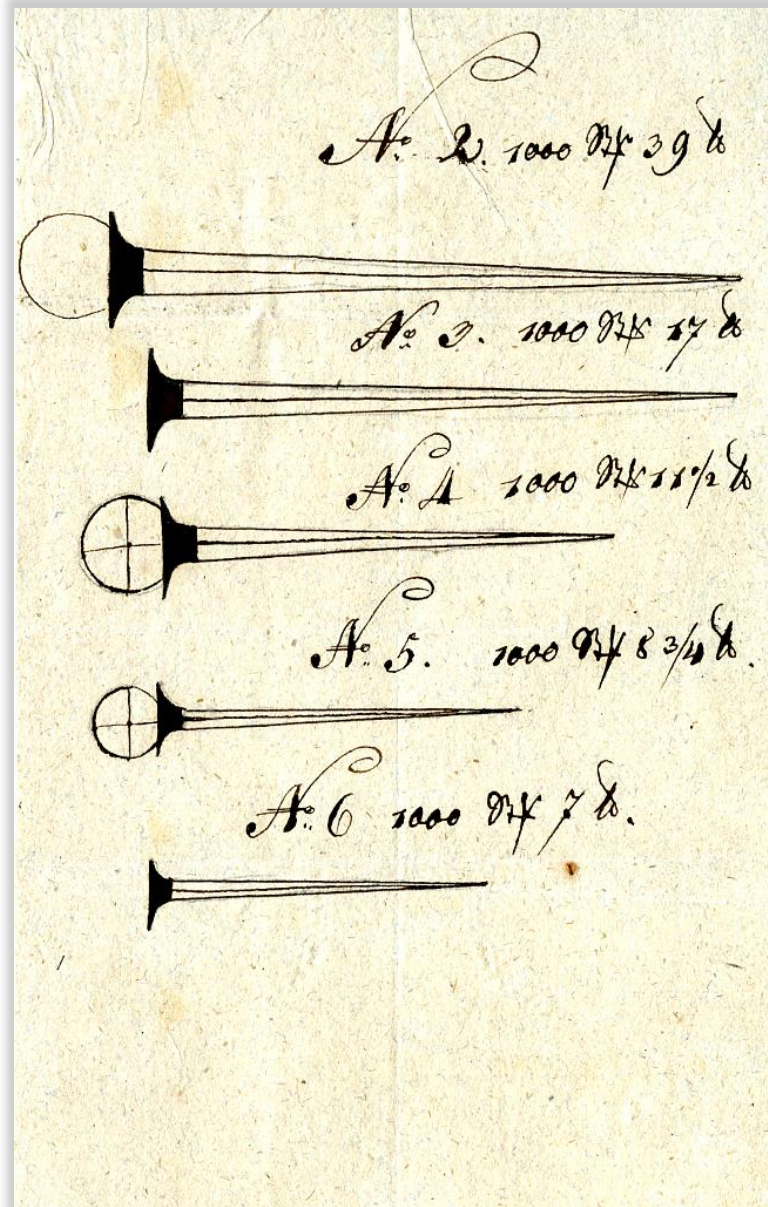 No. 2. 1000 Stk 39 ℔
No. 3. 1000 Stk 17 ℔
No. 4 1000 Stk 11 1/2 ℔
No. 5. 1000 Stk 8 3/4 ℔.
No. 6 1000 Stk 7 ℔.